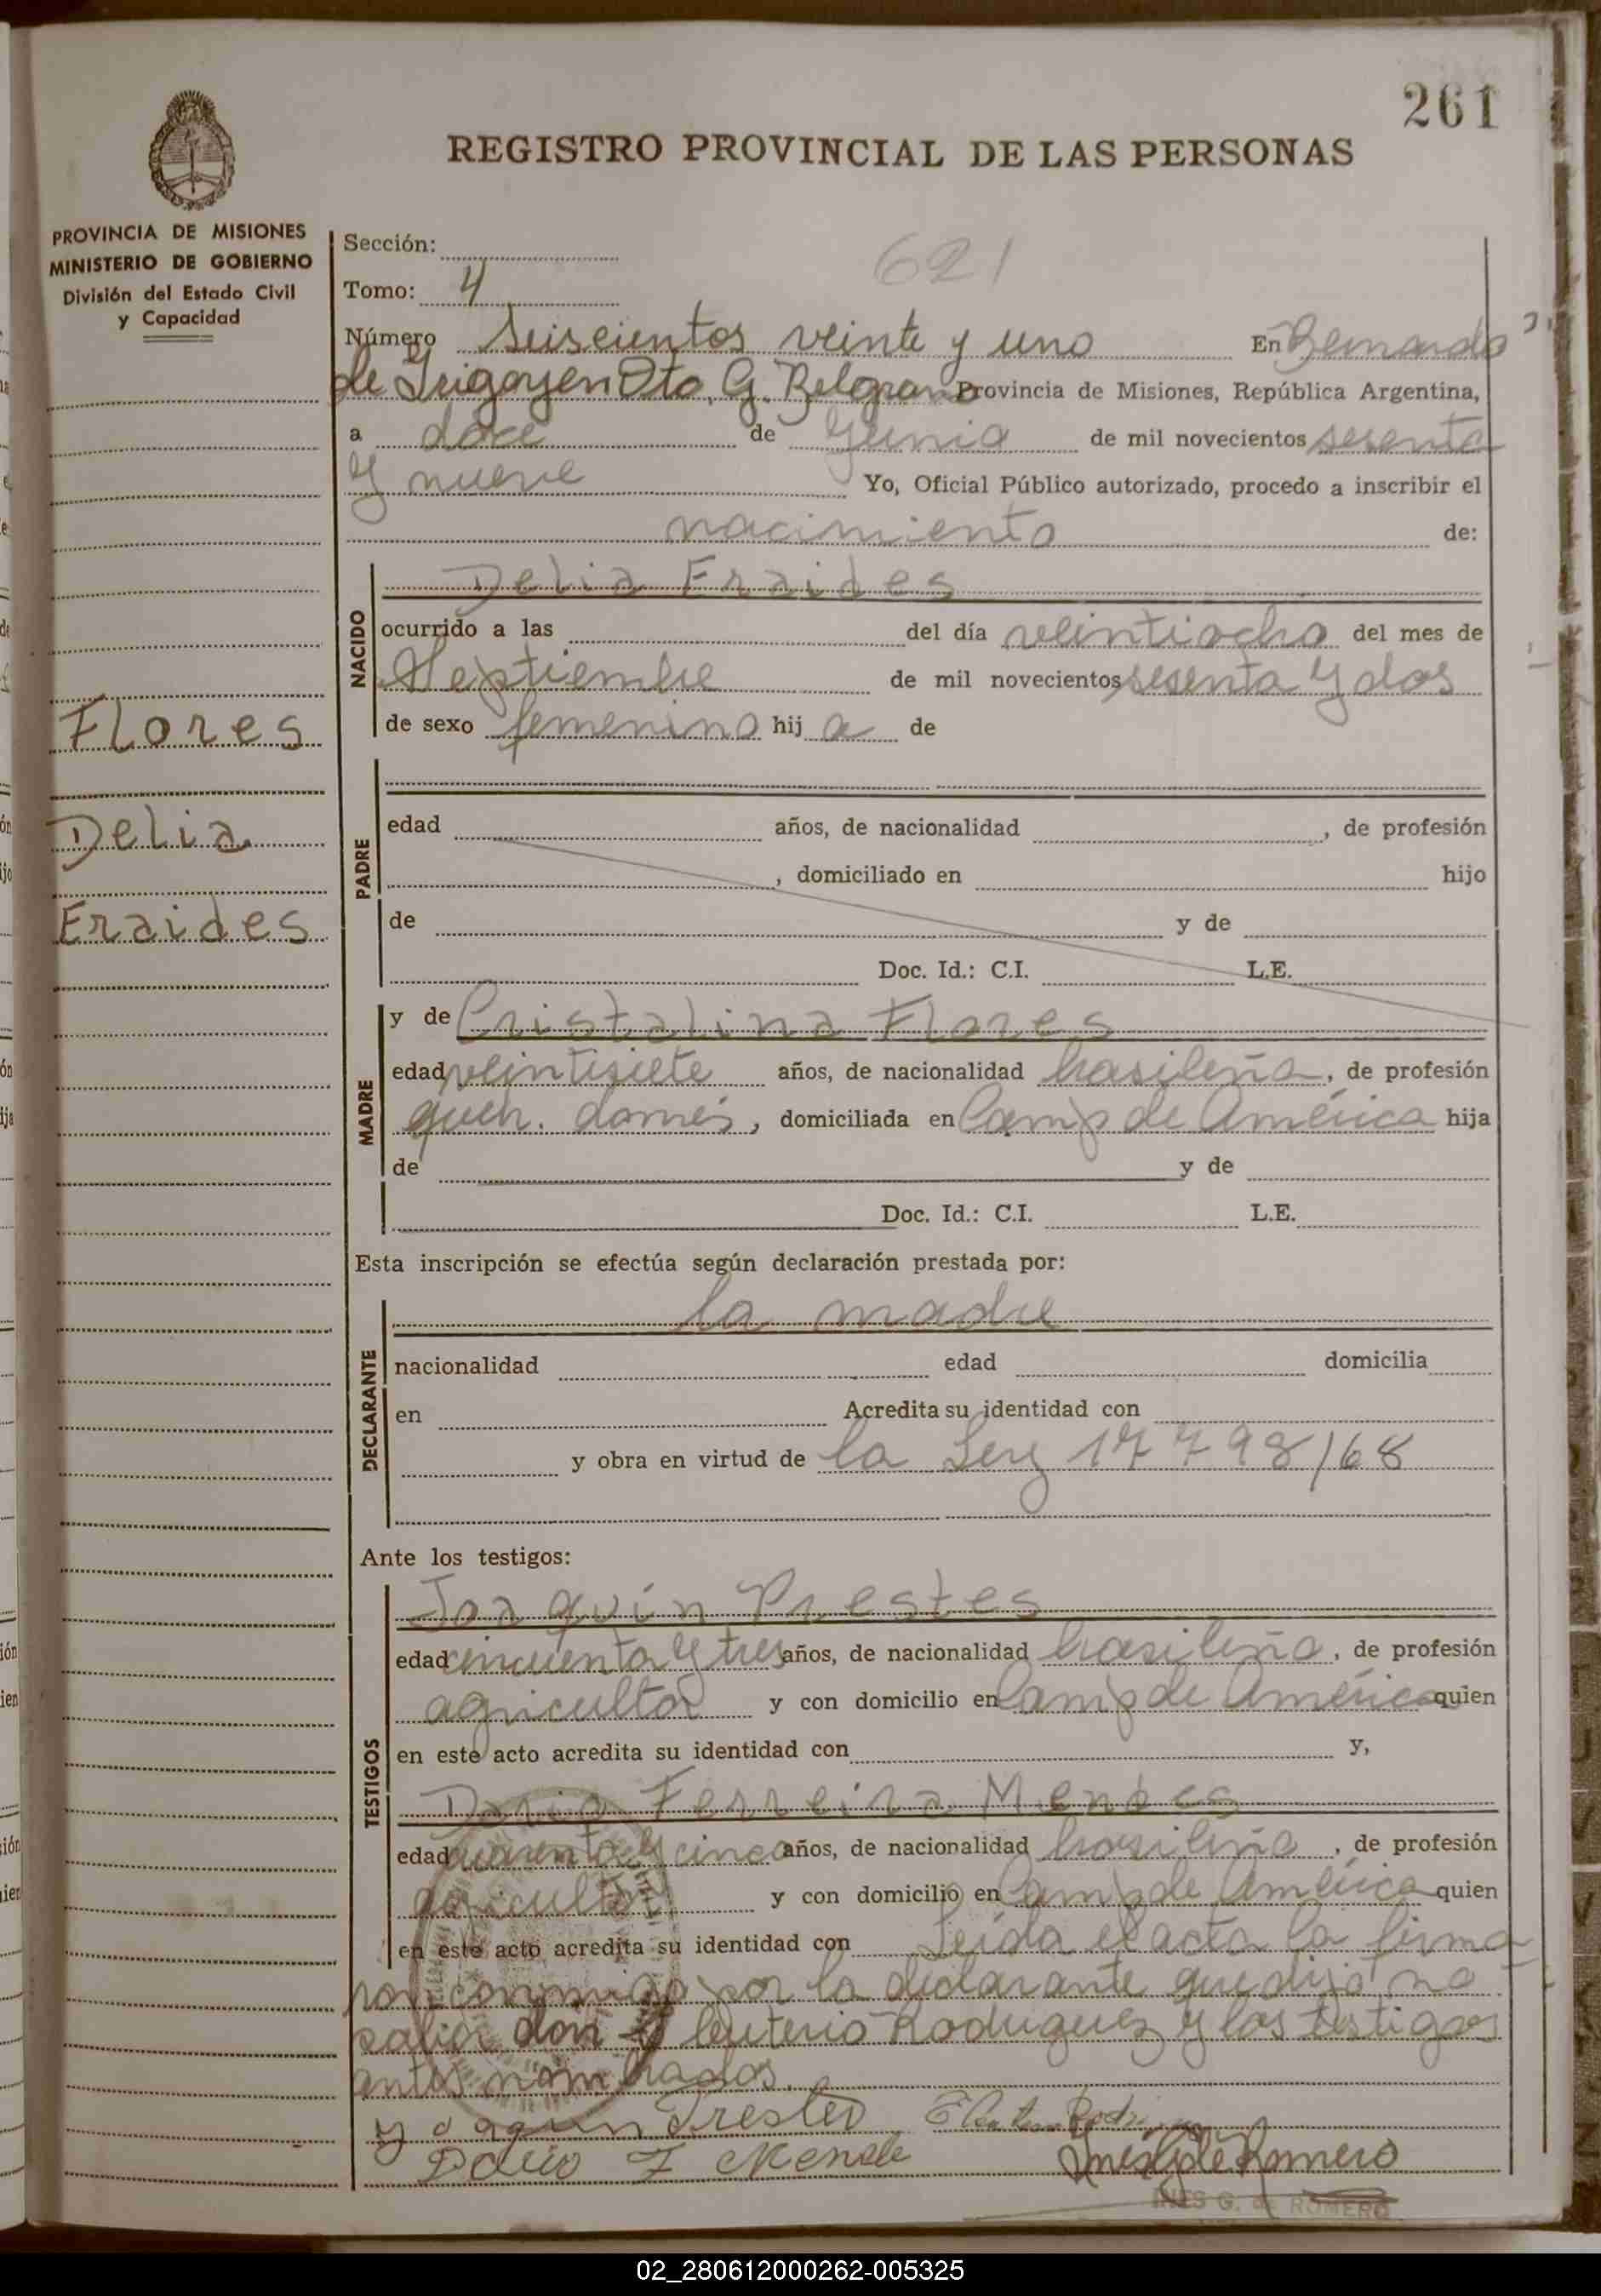 261
REGISTRO PROVINCIAL DE LAS PERSONAS
PROVINCIA DE MISIONES
MINISTERIO DE GOBIERNO
División del Estado Civil
y Capacidad
Flores
Delia
Eraides
Sección:
621
Tomo: 4
Número Seiscientos veinte y uno En Bernardo
de Irigoyen Dto. G. Belgrano Provincia de Misiones, República Argentina,
a doce de Junio de mil novecientos sesenta
y nueve Yo, Oficial Público autorizado, procedo a inscribir el
nacimiento de:
NACIDO
Delia Eraides
ocurrido a las del día veintiocho del mes de
Septiembre de mil novecientos sesenta y dos
de sexo femenino hij a de
PADRE
edad años, de nacionalidad , de profesión
, domiciliado en hijo
de y de
Doc. Id.: C.I. L.E.
MADRE
y de Cristalina Flores
edad veintisiete años, de nacionalidad brasileña, de profesión
queh. domés, domiciliada en Camp de América hija
de y de
Doc. Id.: C.I. L.E.
Esta inscripción se efectúa según declaración prestada por:
DECLARANTE
la madre
nacionalidad edad domicilia
en Acredita su identidad con
y obra en virtud de la Ley 17798/68
Ante los testigos:
TESTIGOS
Joaquín Prestes
edad cincuenta y tres años, de nacionalidad brasileña, de profesión
agricultor y con domicilio en Camp de América quien
en este acto acredita su identidad con y,
Dario Ferreira Mendes
edad cuarenta y cinco años, de nacionalidad brasileña, de profesión
agricultor y con domicilio en Camp de América quien
en este acto acredita su identidad con Leída el acta la firma
ron conmigo por la declarante que dijo no
saber don Eleuterio Rodriguez y los testigos
antes nombrados.
Joaquin Prestes
Dario F Mende
INES G. de ROMERO
02_280612000262-005325